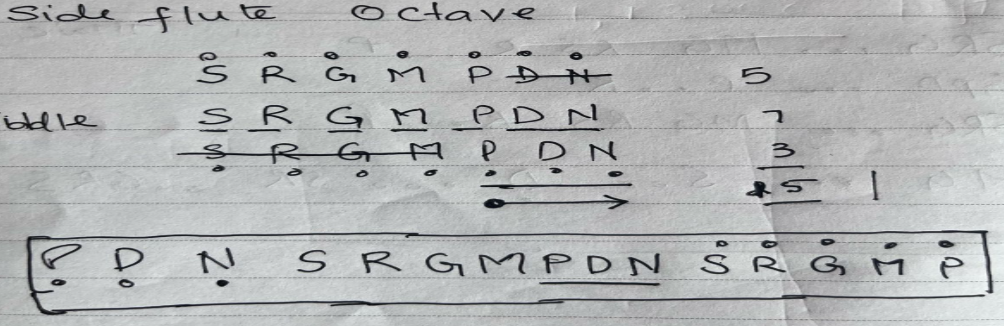 Side flute Octave
Ṡ Ṙ Ġ Ṁ Ṗ Ḋ Ṅ 5
iddle S R G M P D N 7
Ṣ Ṛ G̣ Ṃ P̣ Ḍ Ṇ 3
15
P̣ Ḍ Ṇ S R G M P D N Ṡ Ṙ Ġ Ṁ Ṗ